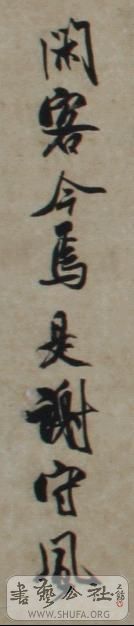 闲客今焉是谢守风
書藝公社
WWW.SHUFA.ORG